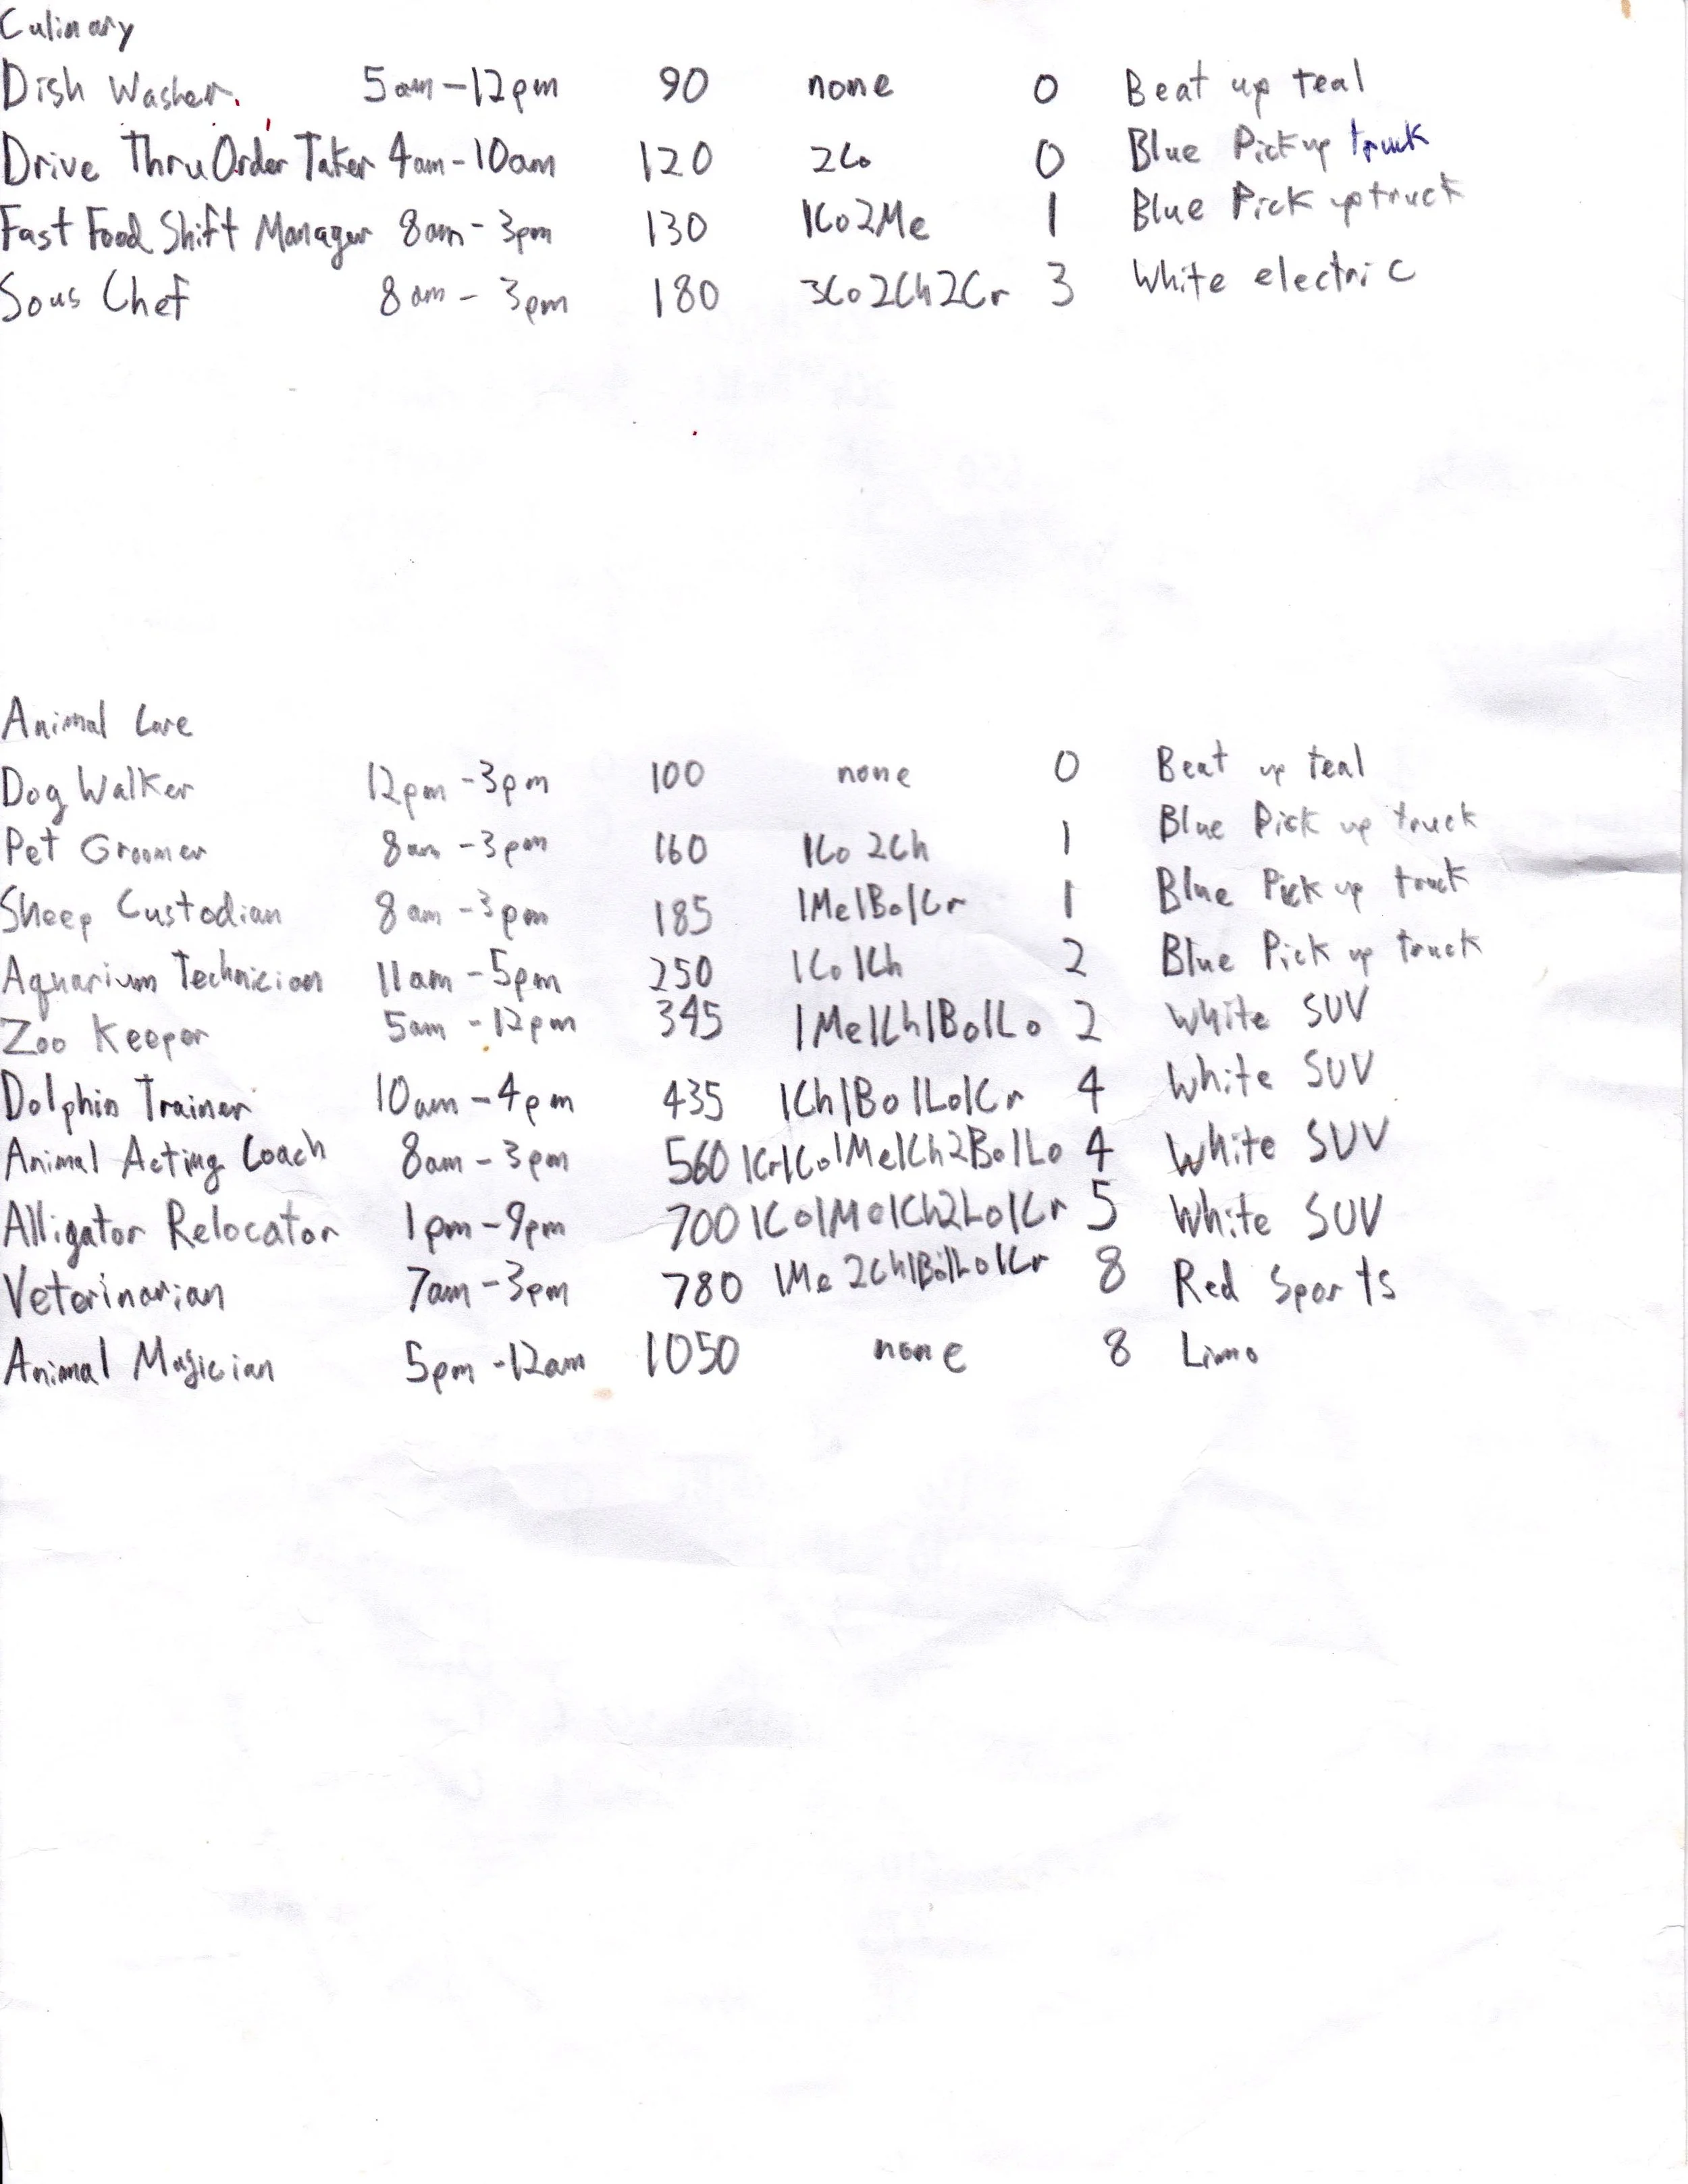 Culinary
Dish Washer 5am-12pm 90 none 0 Beat up teal
Drive Thru Order Taker 4am-10am 120 2Co 0 Blue Pick up truck
Fast Food Shift Manager 8am-3pm 130 1Co2Me 1 Blue Pick up truck
Sous Chef 8am-3pm 180 3Co2Ch2Cr 3 White electric
Animal Care
Dog Walker 12pm-3pm 100 none 0 Beat up teal
Pet Groomer 8am-3pm 160 1Co 2Ch 1 Blue Pick up truck
Sheep Custodian 8am-3pm 185 1Me1Bo1Cr 1 Blue Pick up truck
Aquarium Technician 11am-5pm 250 1Co1Ch 2 Blue Pick up truck
Zoo Keeper 5am-12pm 345 1Me1Ch1Bo1Lo 2 White SUV
Dolphin Trainer 10am-4pm 435 1Ch1Bo1Lo1Cr 4 White SUV
Animal Acting Coach 8am-3pm 560 1Cr1Co1Me1Ch2Bo1Lo 4 White SUV
Alligator Relocator 1pm-9pm 700 1Co1Me1Ch2Lo1Cr 5 White SUV
Veterinarian 7am-3pm 780 1Me 2Ch1Bo1Lo1Cr 8 Red Sports
Animal Magician 5pm-12am 1050 none 8 Limo